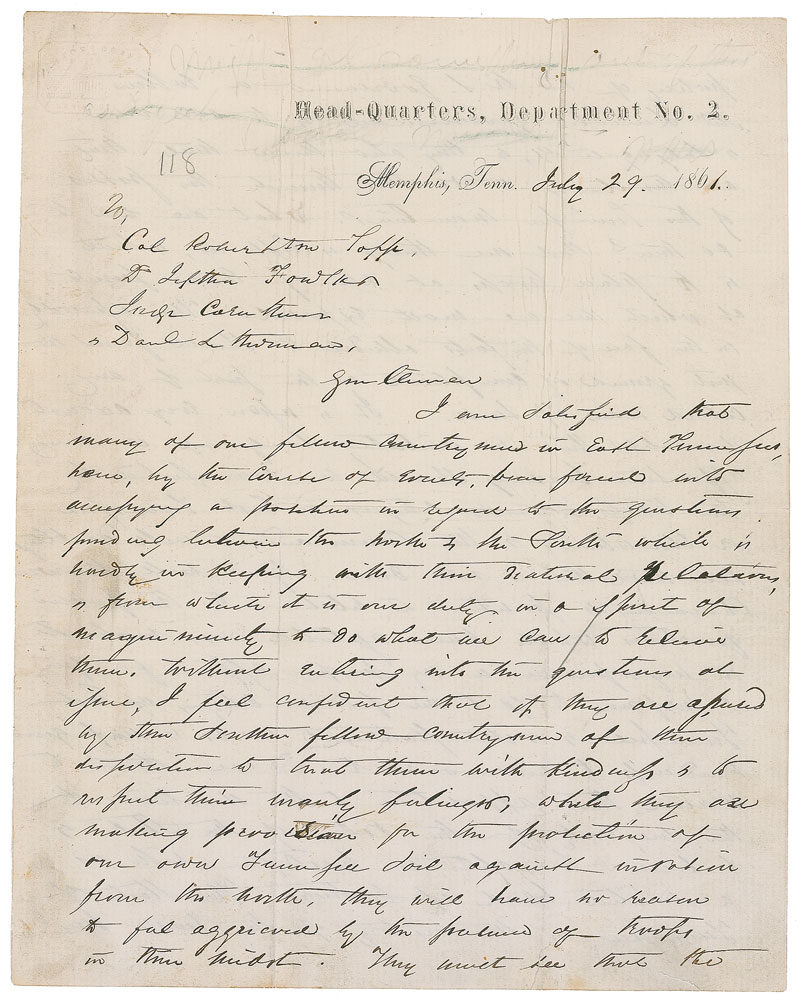 Head-Quarters, Department No. 2.
118
Memphis, Tenn. July 29. 1861.
To,
Col Robertson Topp,
Dr Jeptha Fowlkes
Judge Caruthers
& Danl
Gentlemen
I am satisfied that
many of our fellow countrymen in East Tennessee,
have, by the course of events, been forced into
occupying a position in regard to the questions
pending between the North & the South which is
hardly in keeping with their natural relations,
& from which it is our duty in a spirit of
magnanimity to do what we can to relieve
them. Without entering into the questions at
issue, I feel confident that if they are assured
by their Southern fellow countrymen of their
disposition to treat them with kindness & to
respect their manly feelings, while they are
making provision for the protection of
our own Tennessee soil against invasion
from the North, they will have no reason
to feel aggrieved by the presence of troops
in their midst. They must see that the